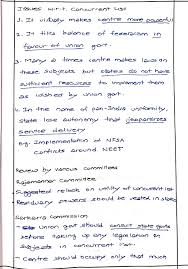 Issues w.r.t. Concurrent List
1. It unduly makes centre more powerful
2. It tilts balance of federalism in
favour of union govt.
3. Many a times centre makes laws on
these subjects but states do not have
sufficient resources to implement them
as wished by union govt.
4. In the name of pan-India uniformity,
state lose autonomy that jeopardizes
service delivery
e.g. Implementation of NFSA
conflicts around NEET
Review by various committees
Rajamannar Committee
Suggested relook on utility of concurrent list
Residuary powers should be vested in states
Sarkaria Commission
Union govt should consult state govts
before taking up any legislation on
subjects in concurrent list.
- Centre should occupy only that much